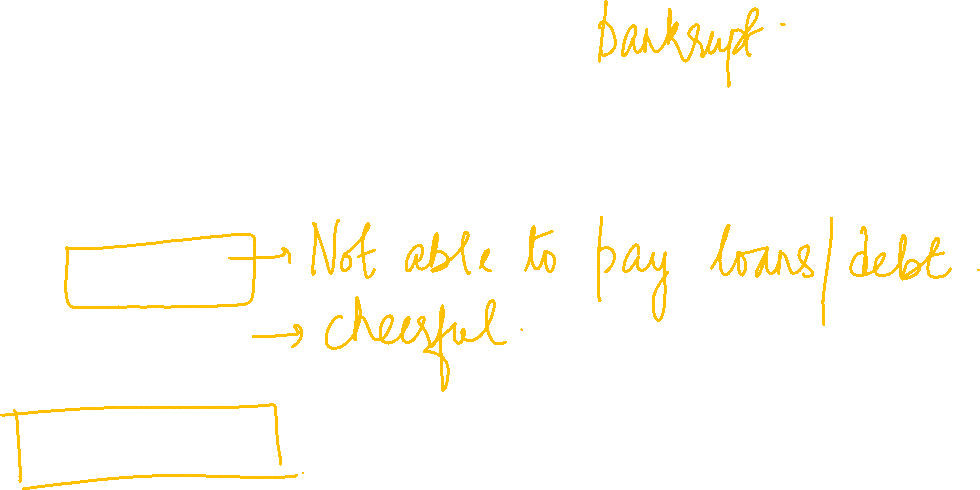 bankrupt.
→ Not able to pay loans/debt.
→ cheerful.